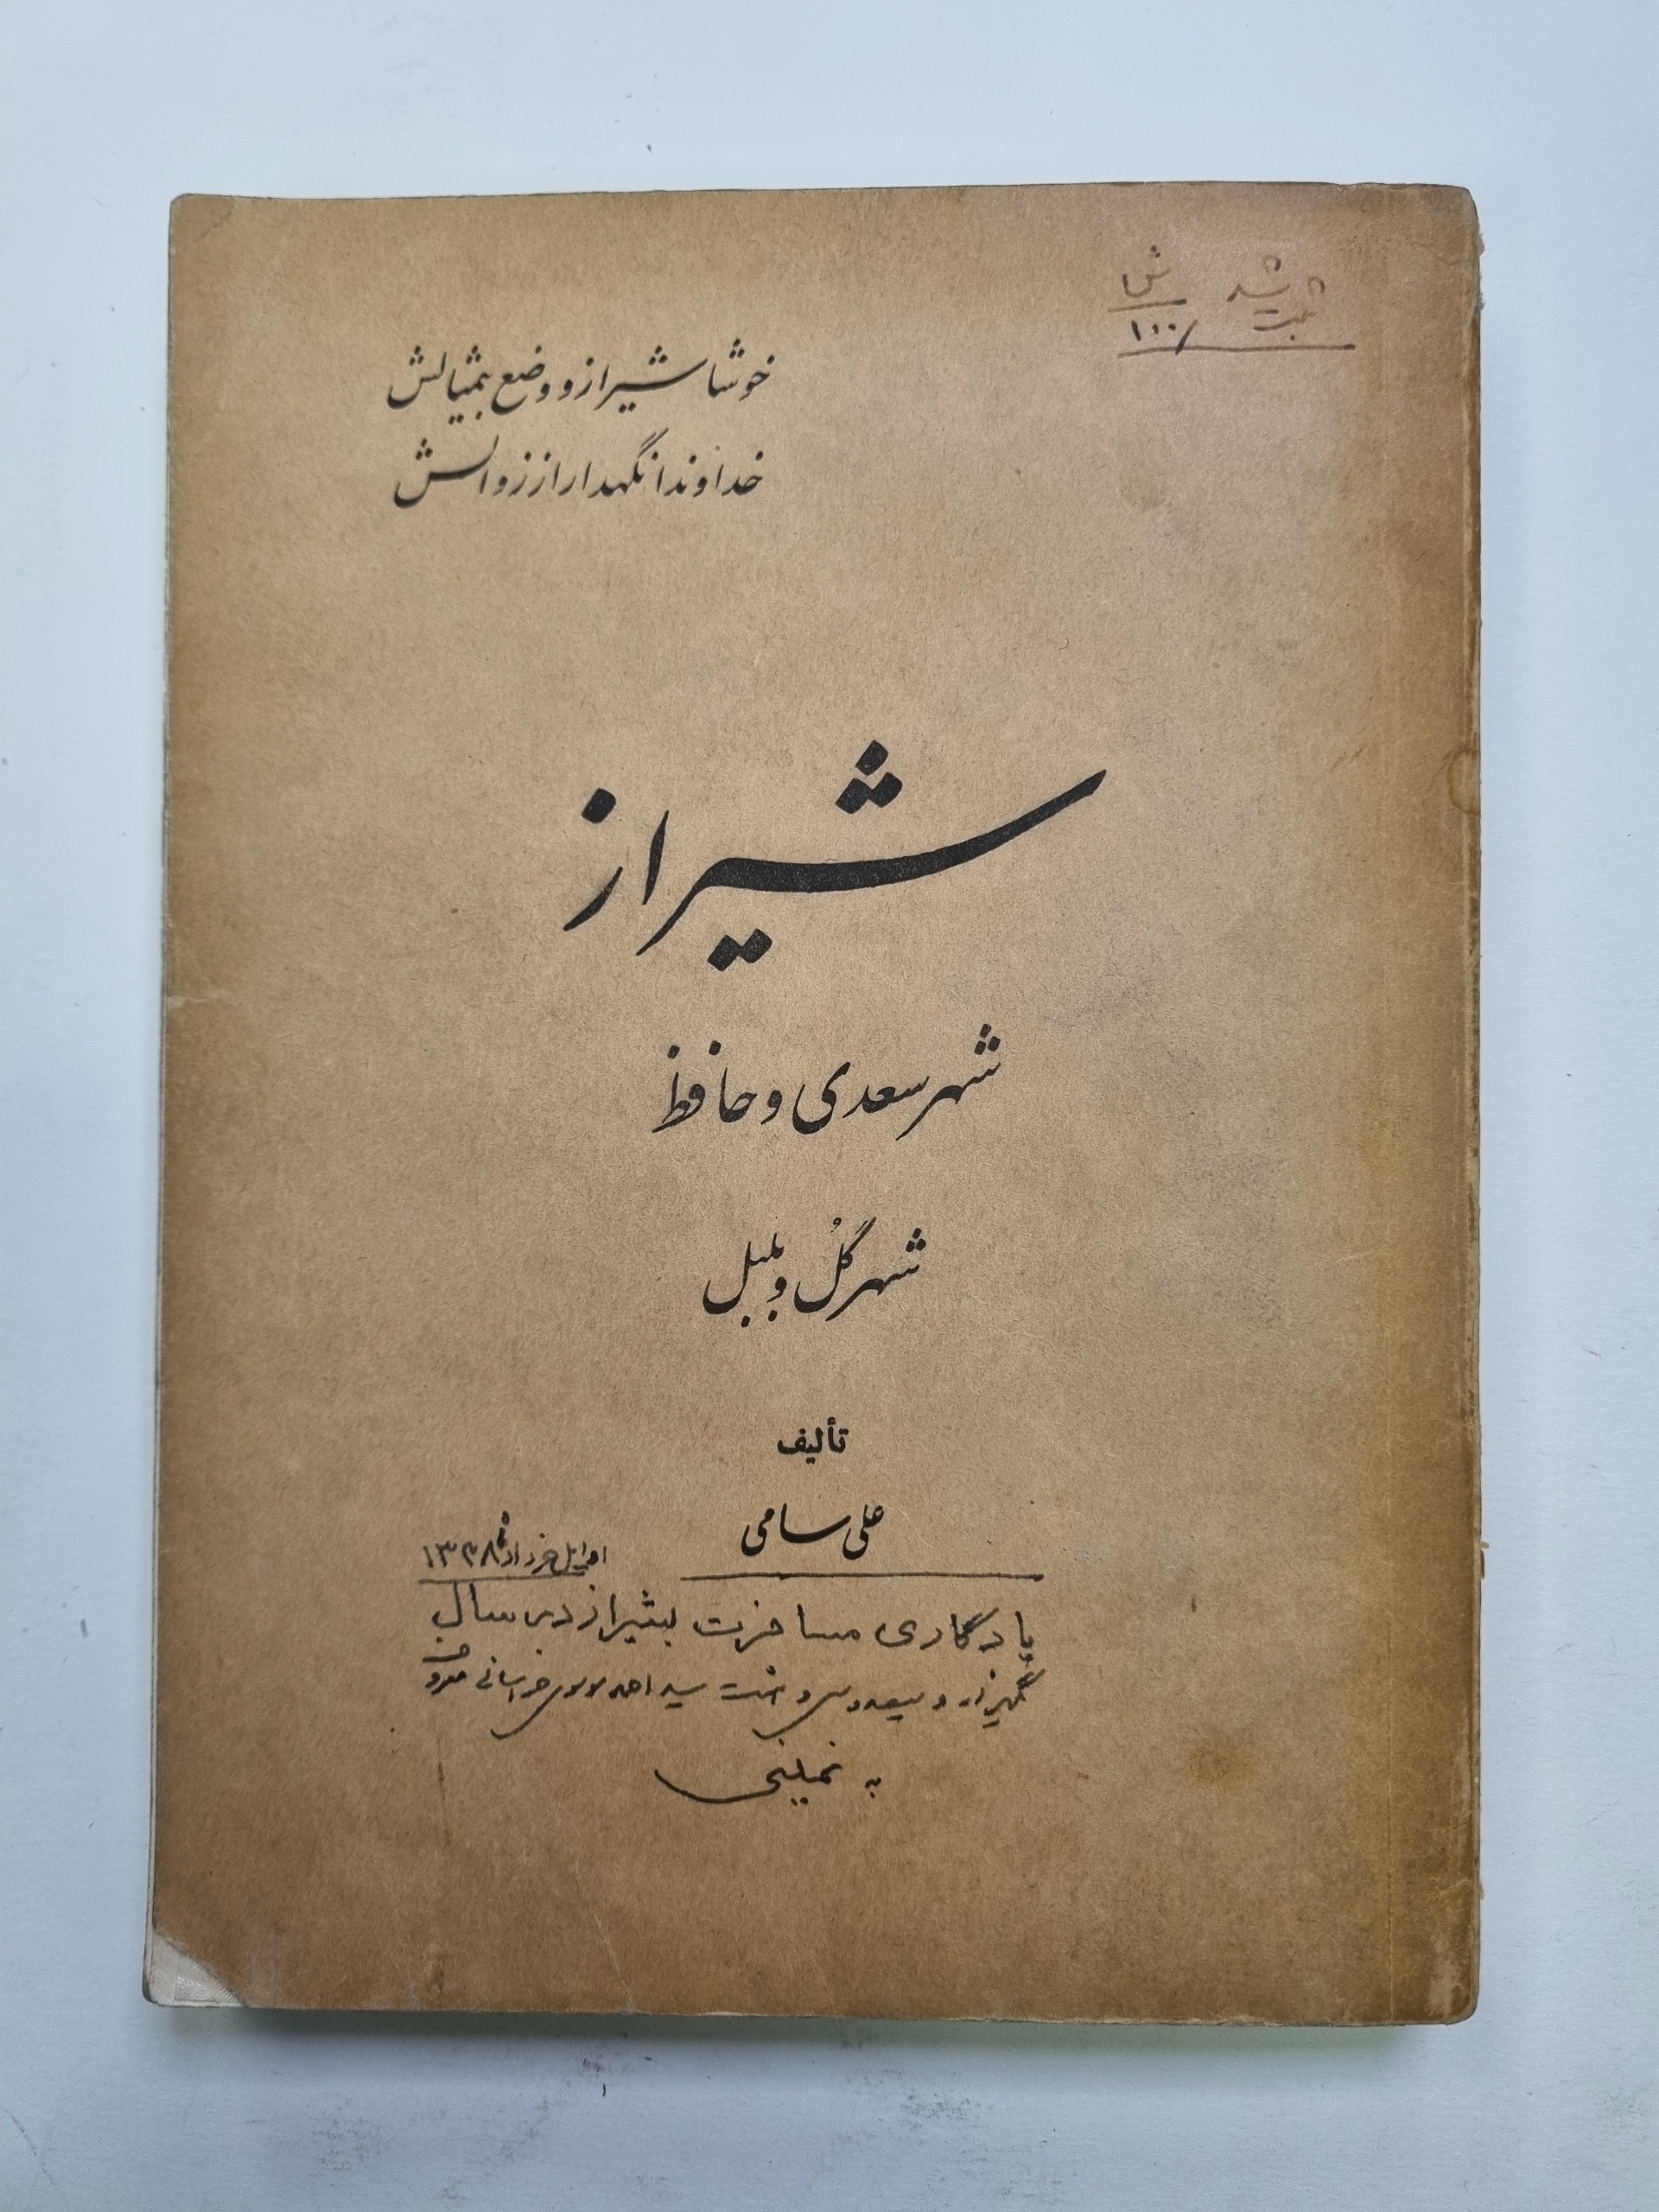 ثبت شد
۱۰۰/
خوشا شیراز و وضع بیمثالش
خداوندا نگهدار از زوالش
شیراز
شهر سعدی و حافظ
شهر گُل و بلبل
تألیف
علی سامی
اوایل خرداد ۱۳۳۸
یادگاری مسافرت بشیراز در سال
سید احمد موسوی خراسانی معروف
به خمینی